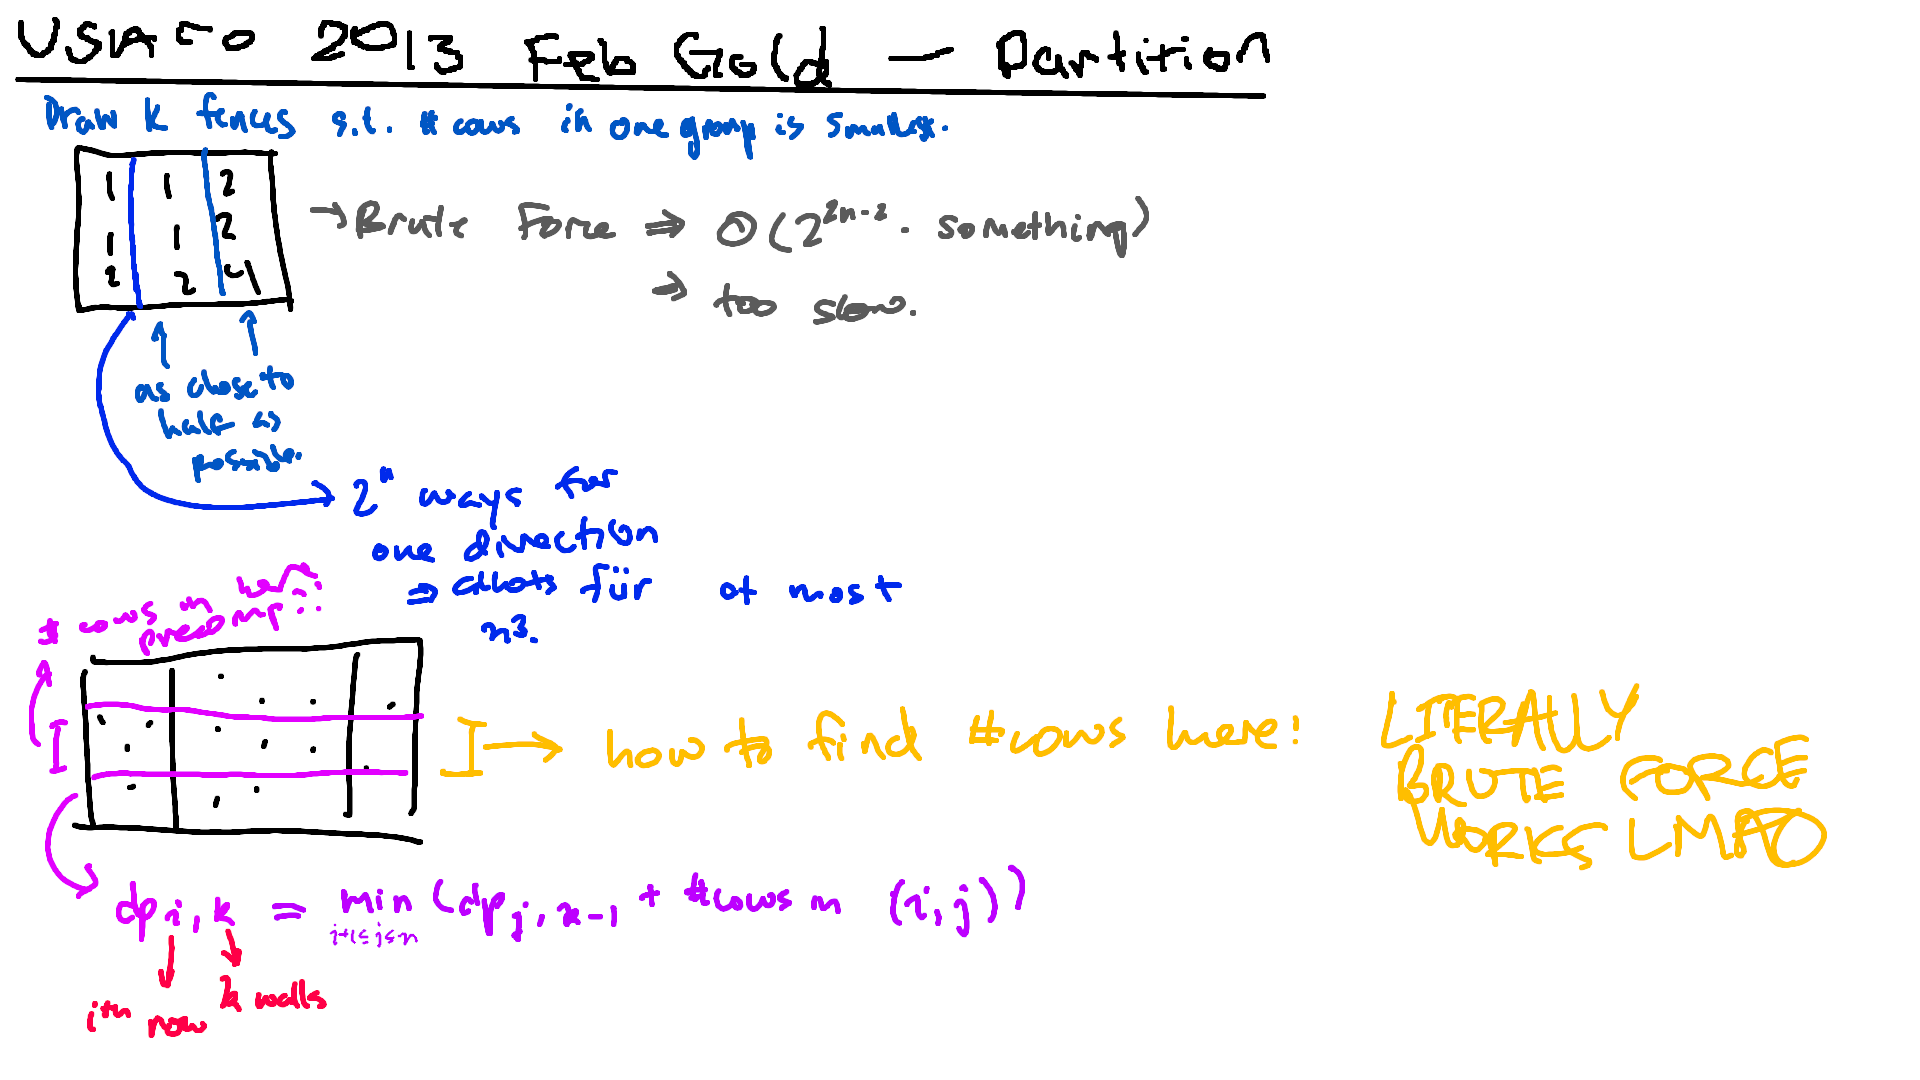 USACO 2013 Feb Gold — Partition
Draw K fences s.t. # cows in one group is smallest.
1 1 2
1 1 2
2 2 4
→ Brute Force ⇒ O(2^{2n-2} · something)
⇒ too slow.
as close to
half as
possible.
2^n ways for
one direction
⇒ allots für at most
n^3.
# cows in here
precomp!!
I → how to find #cows here!
LITERALLY
BRUTE FORCE
WORKS LMAO
dp_{i,k} = min_{i+1≤j≤n} (dp_{j,k-1} + #cows in (i,j))
ith row
k walls